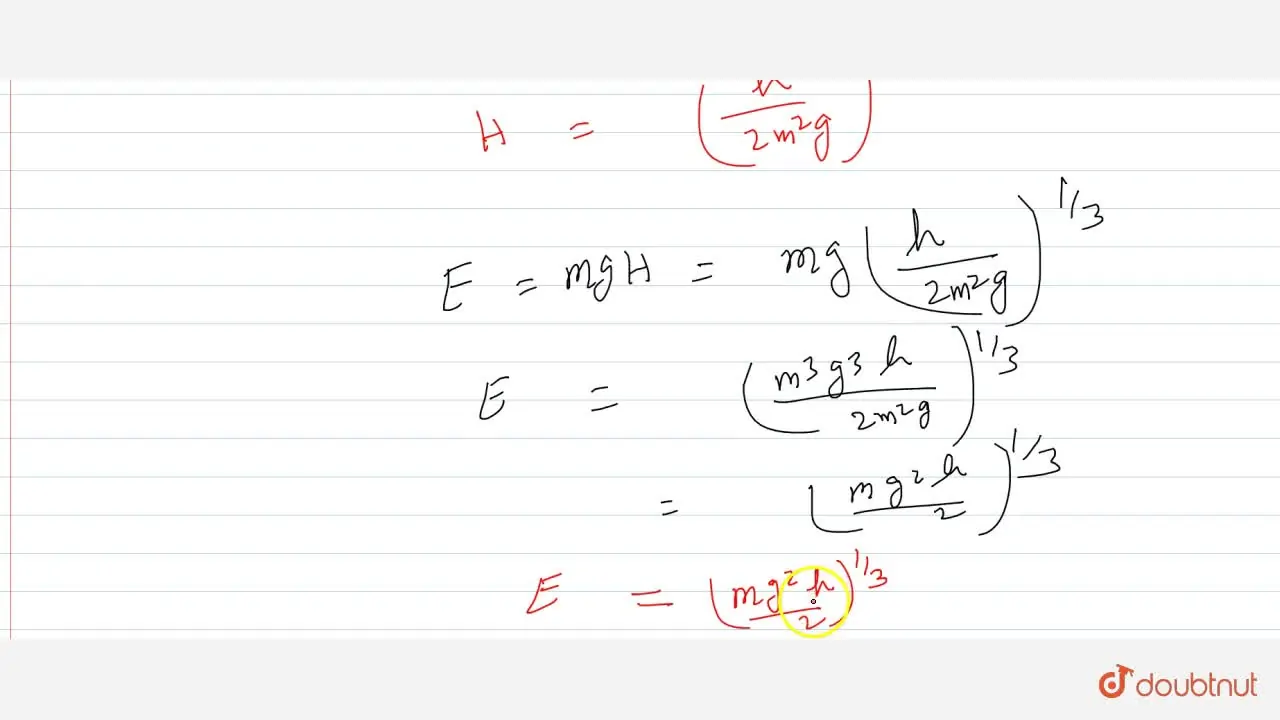 H = (h/2m²g)
E = mgH = mg(h/2m²g)^1/3
E = (m3 g3 h/2m²g)^1/3
= (m g² h/2)^1/3
E = (mg² h/2)^1/3
doubtnut